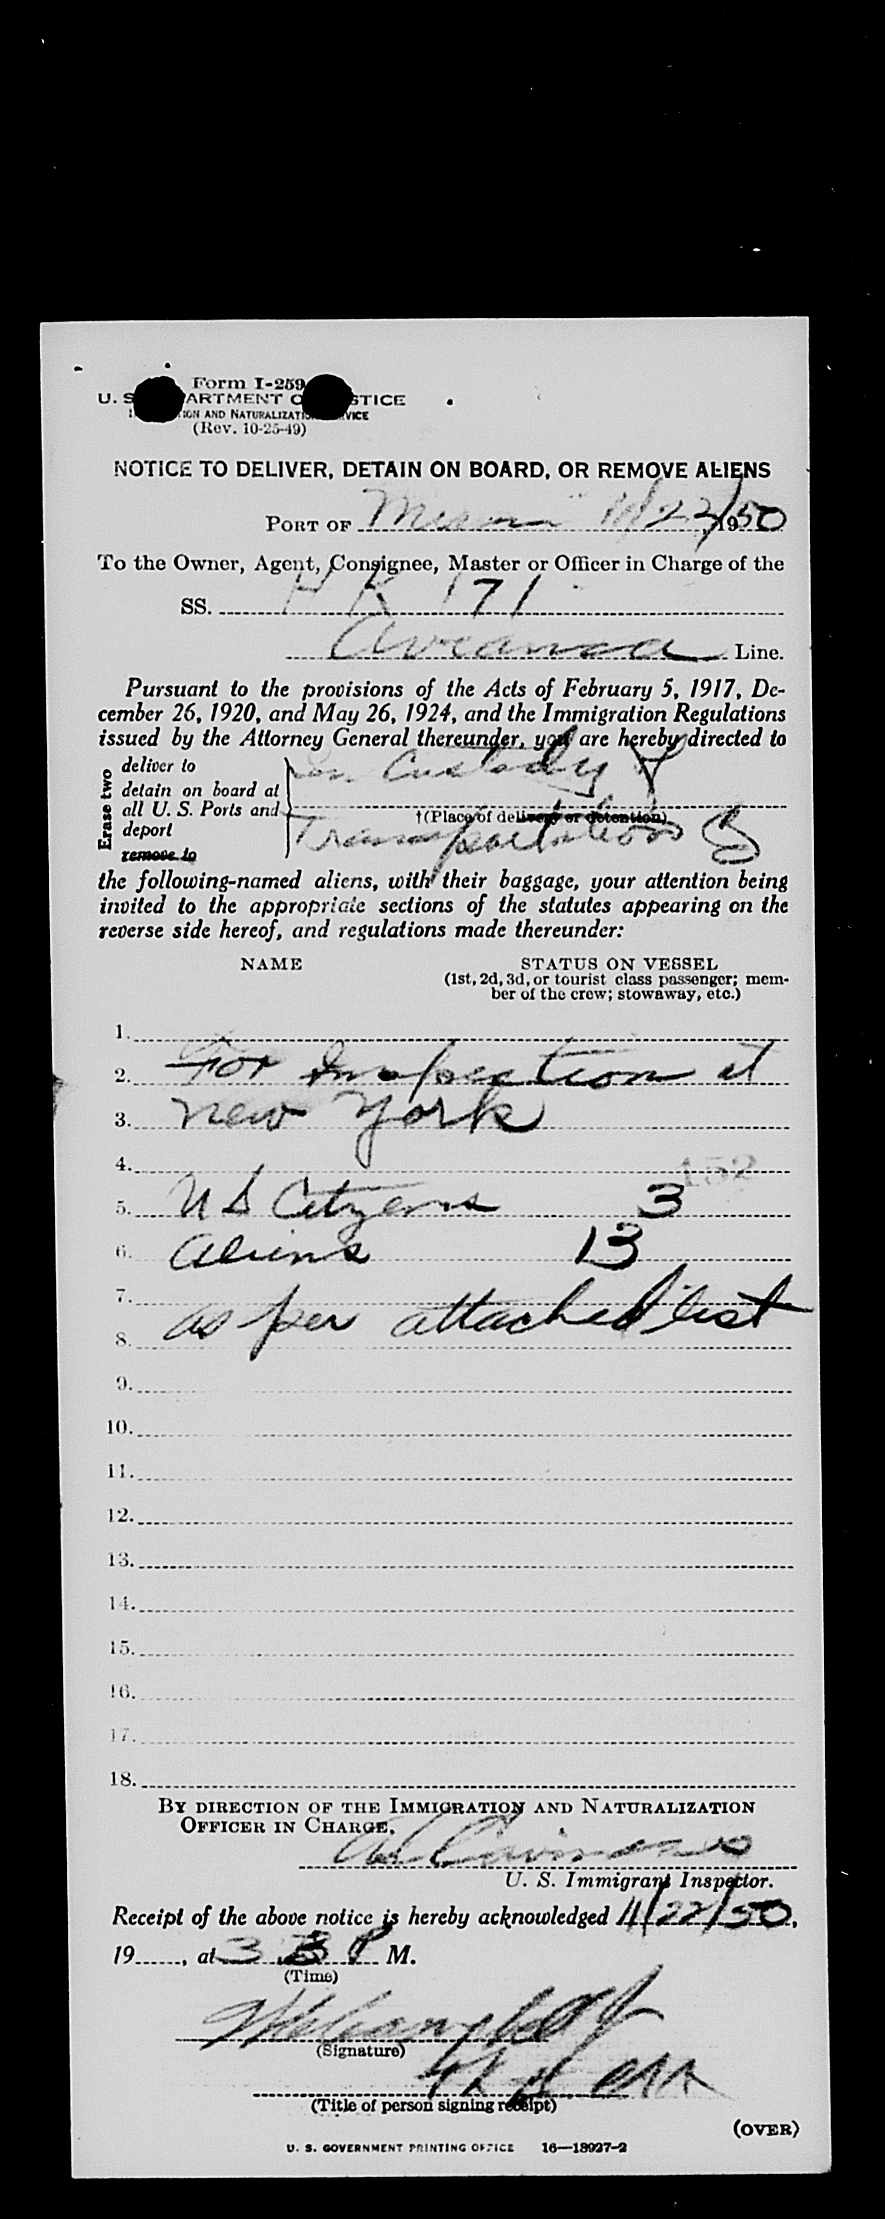 Form I-259
U. S. DEPARTMENT OF JUSTICE
IMMIGRATION AND NATURALIZATION SERVICE
(Rev. 10-25-49)
NOTICE TO DELIVER, DETAIN ON BOARD, OR REMOVE ALIENS
PORT OF Miami 11/22/, 1950
To the Owner, Agent, Consignee, Master or Officer in Charge of the
SS. HK 171
Avianca Line.
Pursuant to the provisions of the Acts of February 5, 1917, De-
cember 26, 1920, and May 26, 1924, and the Immigration Regulations
issued by the Attorney General thereunder, you are hereby directed to
Erase two
deliver to
detain on board at
all U. S. Ports and
deport
remove to
Custody &
†(Place of delivery or detention)
Transportation
the following-named aliens, with their baggage, your attention being
invited to the appropriate sections of the statutes appearing on the
reverse side hereof, and regulations made thereunder:
NAME STATUS ON VESSEL
(1st, 2d, 3d, or tourist class passenger; mem-
ber of the crew; stowaway, etc.)
1.
2. For Inspection at
3. New York
4. 152
5. U S Citizens 3
6. Aliens 13
7.
8. as per attached list
9.
10.
11.
12.
13.
14.
15.
16.
17.
18.
BY DIRECTION OF THE IMMIGRATION AND NATURALIZATION
OFFICER IN CHARGE,
U. S. Immigrant Inspector.
Receipt of the above notice is hereby acknowledged 11/22/50,
19......, at 3 P M.
(Time)
(Signature)
(Title of person signing receipt)
(OVER)
U. S. GOVERNMENT PRINTING OFFICE 16—18927-2